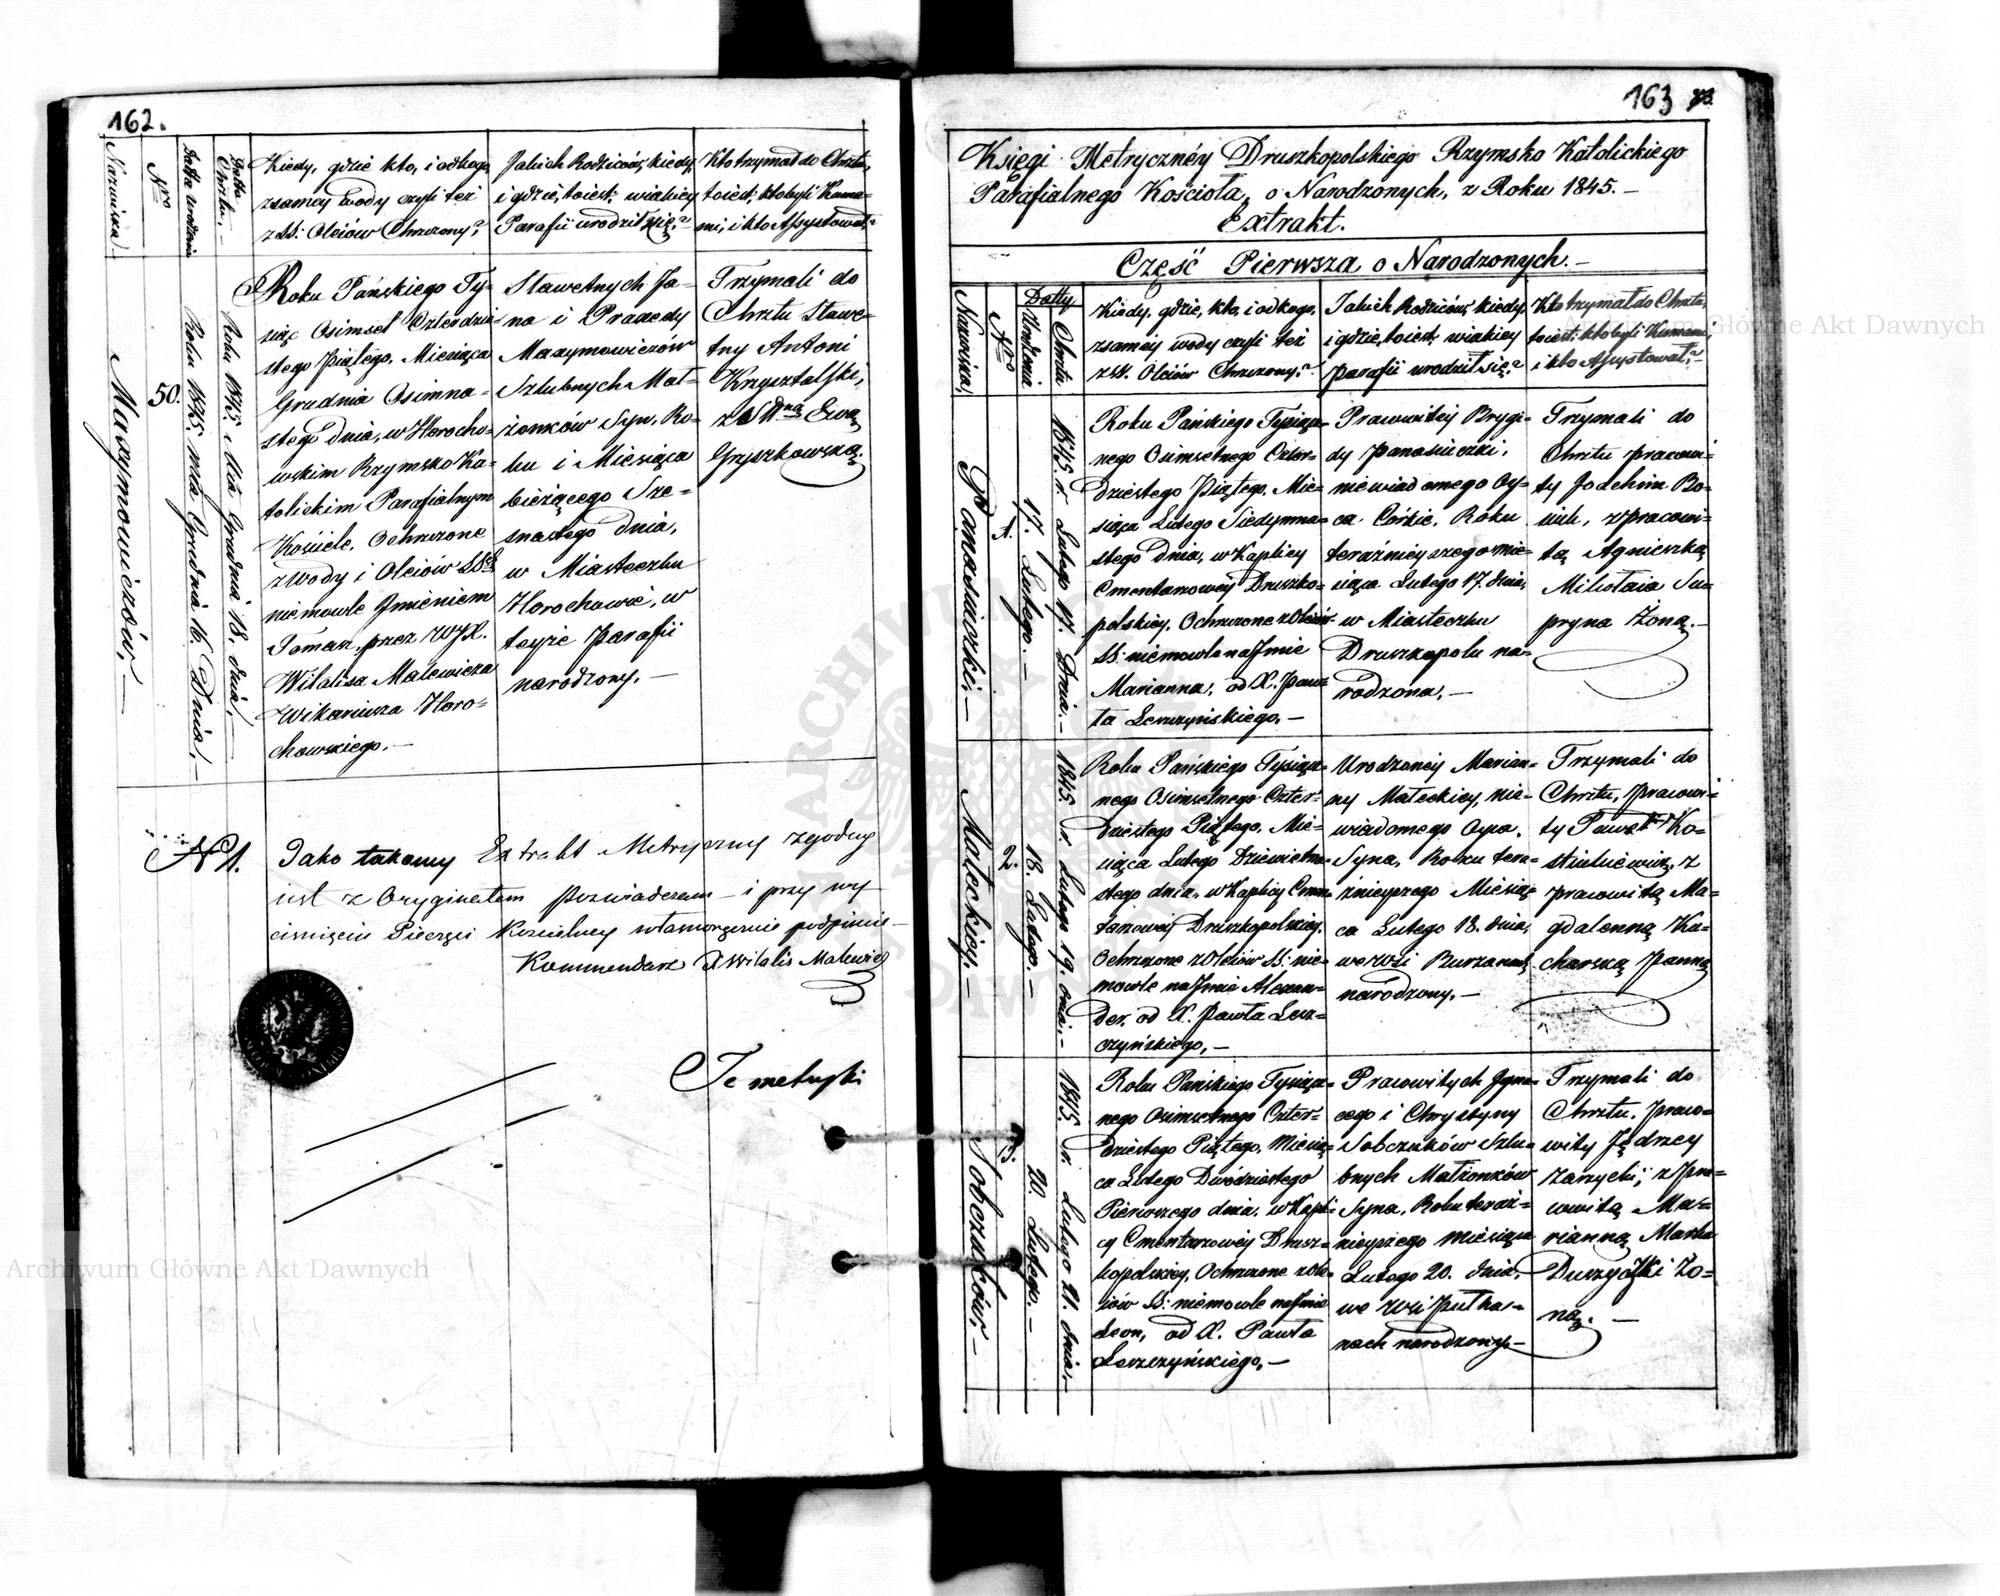 162.
Nazwiska
Nro
Datta urodzenia
Datta Chrztu.
Kiedy, gdzie kto, i odkogo,
zsamey Wody czyli też
z SS: Oleiów Chrzczony?
Jakich Rodziców, kiedy,
i gdzie, toiest, wiakiey
Parafii urodził się?
Kto trzymał do Chrztu,
toiest, ktobyli Kuma=
mi, i kto Assystował?
Maxymowiczów.
50.
Roku 1845 mca Grudnia 16. Dnia.
Roku 1845 Mca Grudnia 18. dnia.
Roku Pańskiego Ty=
siąc Osimset Czterdzie=
stego Piątego, Miesiąca
Grudnia Osimna=
stego dnia, w Horocho=
wskim Rzymsko Ka=
tolickim Parafialnym
Kościele, Ochrzczone
z Wody i Oleiów SS
niemowle Jmieniem
Tomasz, przez WJX.
Witalisa Malewicza
Wikariusza Horo=
chowskiego.
Sławetnych Ja=
na i Praxedy
Maxymowiczów
Szlubnych Mał=
żonków Syn, Ro=
ku i Miesiąca
bieżącego Sze=
snastego dnia,
w Miasteczku
Horochowie, w
teyże Parafii
narodzony.
Trzymali do
Chrztu Sławe=
tny Antoni
Krysztalski,
z Ewą
Gryszkowską.
N 1.
Jako takowy Extrakt Metryczny zgodny
iest z Oryginałem poswiadczam i przy wy
cisnięciu Pieczęci Koscielney własnoręcznie podpisuie
Kommendarz X Witalis Malewicz
163
Księgi Metrycznéy Druszkopolskiego Rzymsko Katolickiego
Parafialnego Kościoła, o Narodzonych, z Roku 1845.
Extrakt.
Część Pierwsza o Narodzonych.
Nazwiska,
Nro
Datty
Urodzenia
Chrztu
Kiedy, gdzie, kto, i odkogo,
zsamey wody czyli też
z SS. Oleiów Chrzczony?
Jakich Rodziców, kiedy,
i gdzie, toiest, wiakiey
parafii urodził się?
Kto trzymał do Chrztu,
toiest, ktobyli Kumami,
i kto Assystował?
Panasiuczki.
1.
17. Lutego.
1845. r. Lutego 17. Dnia.
Roku Pańskiego Tysiącz=
nego Osimsetnego Czter=
dziestego Piątego, Mie=
siąca Lutego Siedymna=
stego dnia, w Kaplicy
Cmentarnowey Druszko=
polskiey, Ochrzczone z Oleiów
SS: niemowle na Jmie
Marianna, od X. Paw=
ła Leszczyńskiego.
Prawowitey Brygi=
dy Panasiuczki,
niewiadomego Oy=
ca Córkie, Roku
teraźnieyszego mie=
siąca Lutego 17. dnia,
w Miasteczku
Druszkopolu na=
rodzona.
Trzymali do
Chrztu pracowi=
ty Jodchim Bo=
z pracowi=
tą Agnieszką
Mikołaia Su=
pryna Żoną.
Małeckiey.
2.
18. Lutego.
1845. r. Lutego 19. dnia.
Roku Pańskiego Tysiącz=
nego Osimsetnego Czter=
dziestego Piątego, Mie=
siąca Lutego Dziewietna=
stego dnia, w Kaplicy Cmen=
tarnowey Druszkopolskiey,
Ochrzczone z Oleiów SS: nie=
mowle na Jmie Alexan=
der, od X. Pawła Lesz=
czyńskiego.
Urodzoney Marian=
ny Małeckiey, nie=
wiadomego Oyca,
Syna, Roku tera=
źnieyszego Miesią=
ca Lutego 18. dnia,
we wsi
narodzony.
Trzymali do
Chrztu, Pracowi=
ty Paweł Ko=
z
pracowitą Ma=
gdalenną Ku=
charską Panną
Sobczuków.
3.
20. Lutego.
1845. r. Lutego 21. dnia.
Roku Pańskiego Tysiącz=
nego Osimsetnego Czter=
dziestego Piątego, Miesią=
ca Lutego Dwódziestego
Pierwszego dnia, w Kapli=
cy Cmentarnowey Drusz=
kopolskiey, Ochrzczone z Ole=
iów SS: niemowle na Jmie
Leon, od X. Pawła
Leszczyńskiego.
Pracowitych Jgna=
cego i Chrystyny
Sobczuków Szlu=
bnych Małżonków
Syna, Roku teraź=
nieyszego miesiąca
Lutego 20. dnia,
we wsi
narodzony.
Trzymali do
Chrztu, Praco=
wity Jędrzey
Zarycki, z Pra=
cowitą Ma=
rianną Marka
Żo=
ną.
Archiwum Główne Akt Dawnych